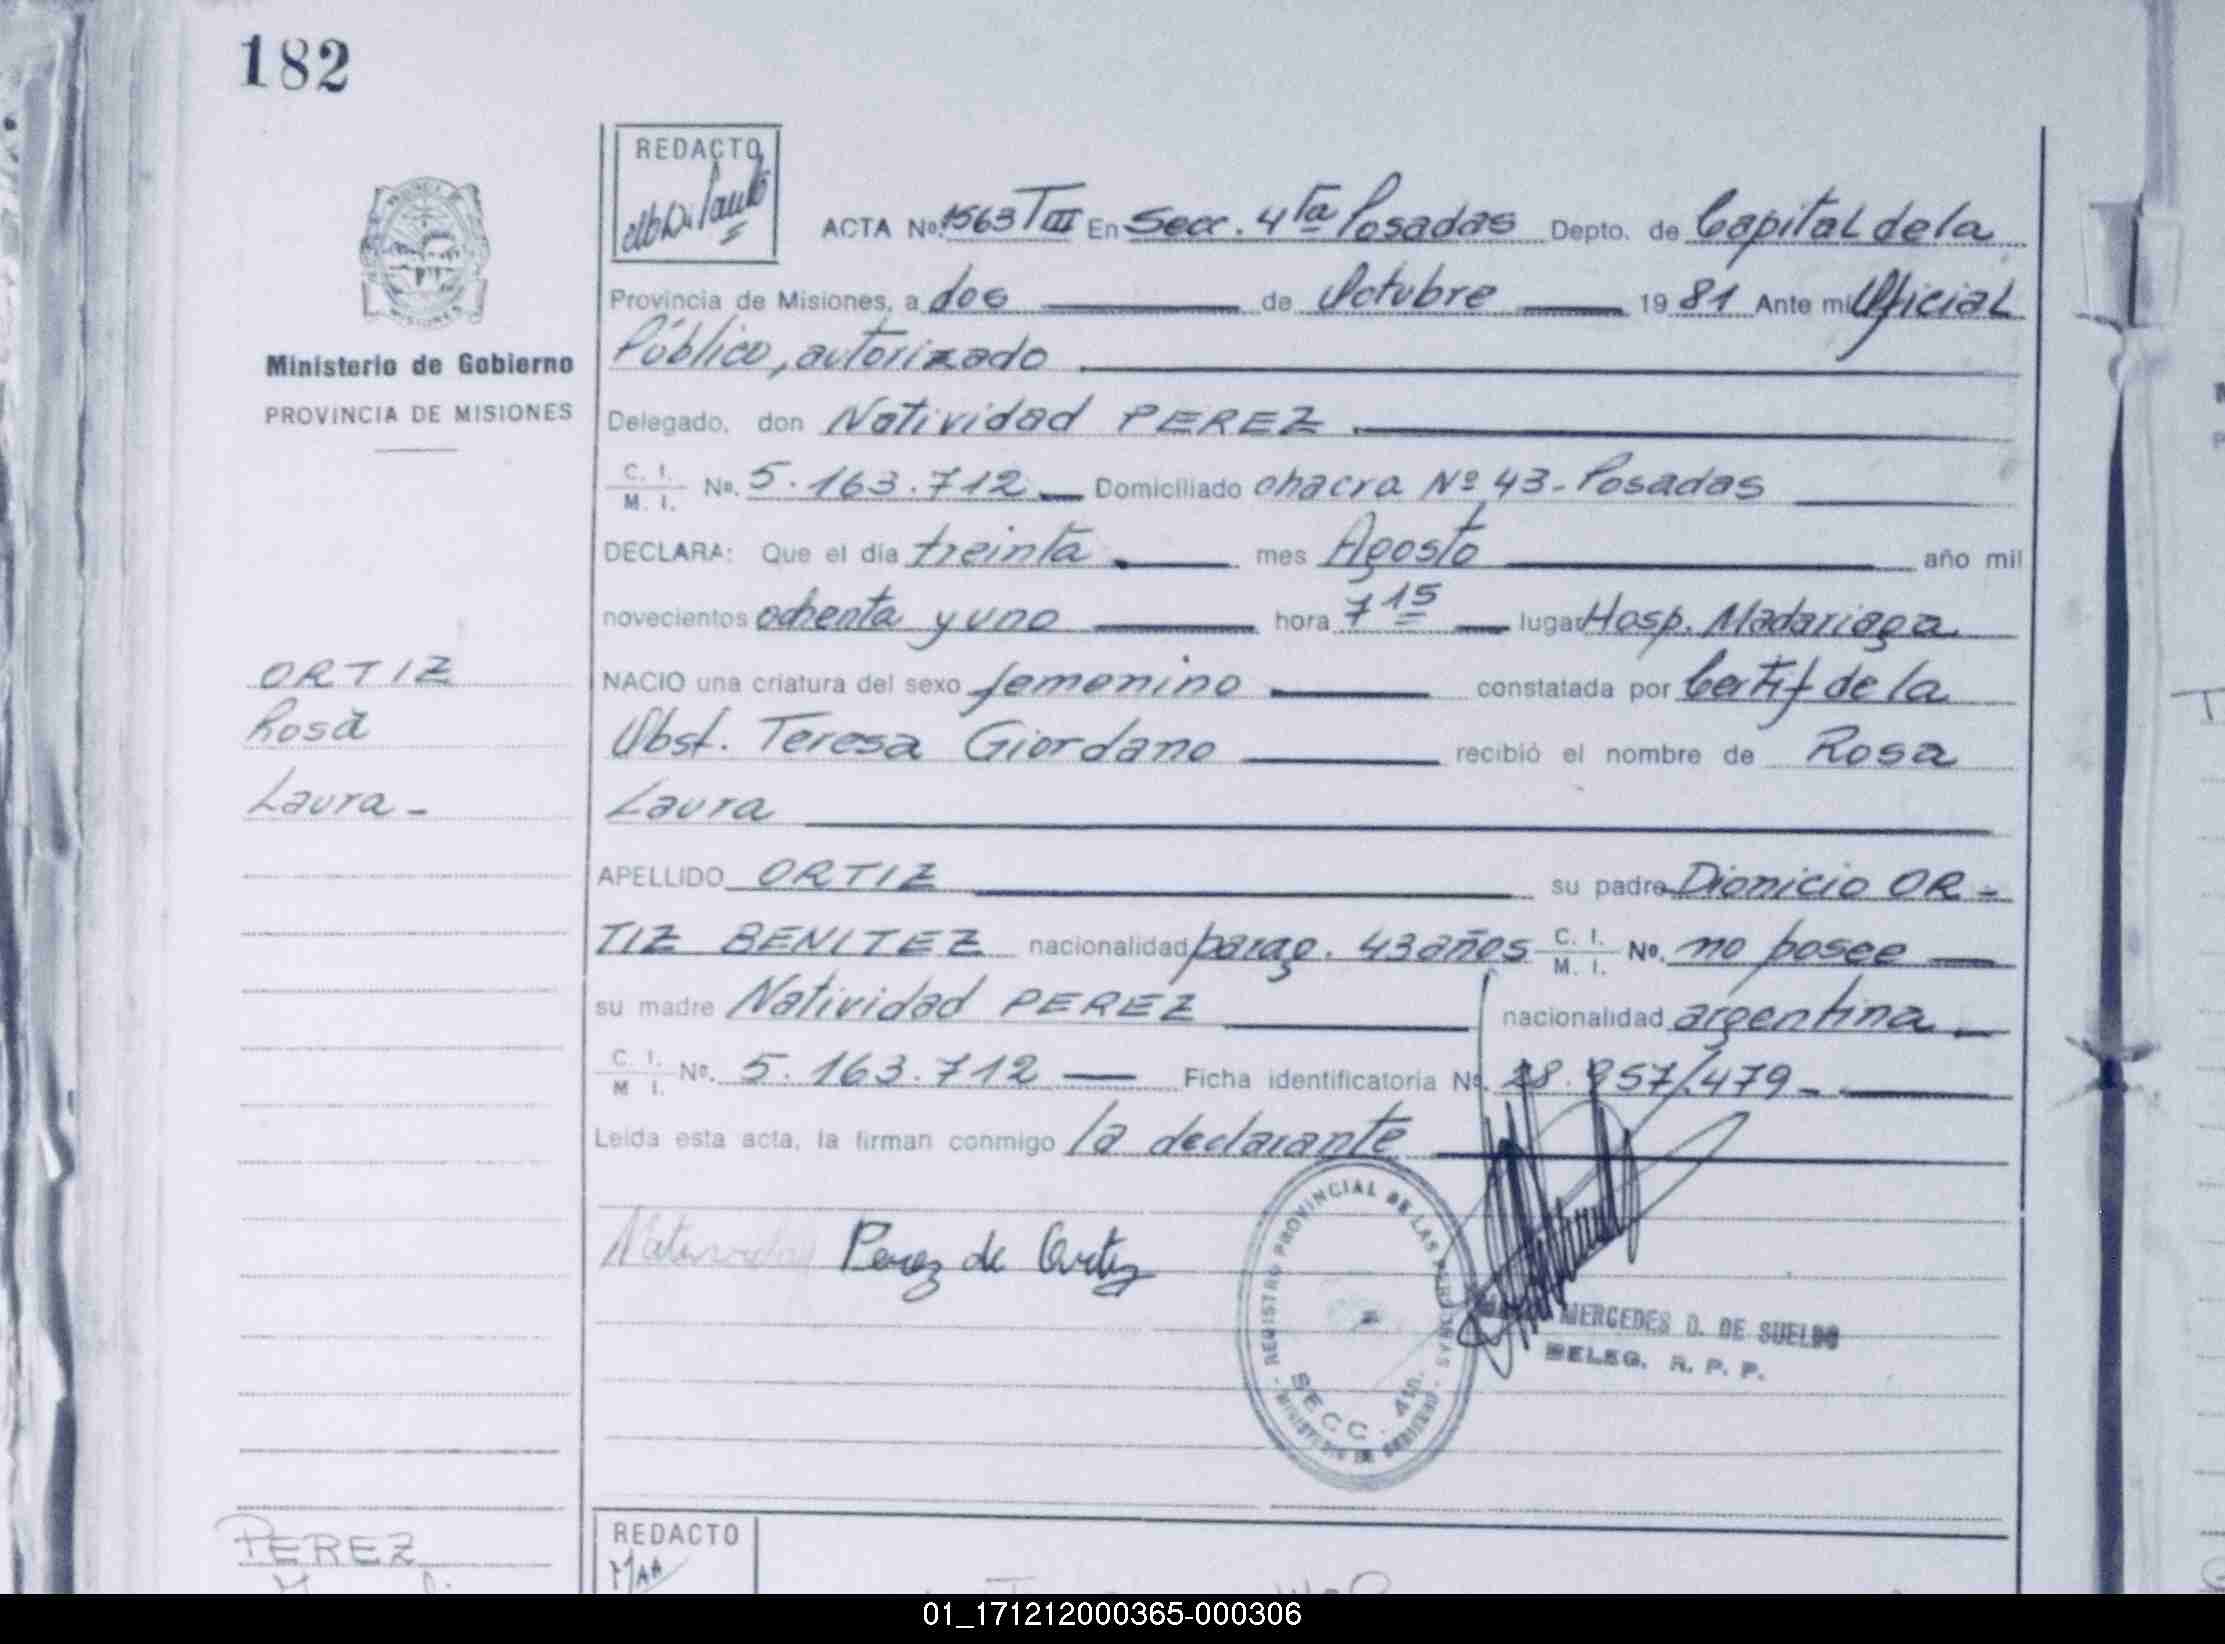 182
REDACTO
ACTA Nº 1563 T III En Secc. 4ta Posadas Depto. de Capital de la
Provincia de Misiones, a dos de Octubre 1981 Ante mi Oficial
Público, autorizado
Ministerio de Gobierno
PROVINCIA DE MISIONES
Delegado, don Natividad PEREZ
C. I. / M. I. Nº. 5.163.712 Domiciliado chacra Nº 43 - Posadas
DECLARA: Que el día treinta mes Agosto año mil
novecientos ochenta y uno hora 7 15 lugar Hosp. Madariaga
ORTIZ
Rosa
Laura -
NACIO una criatura del sexo femenino constatada por Certif de la
Obst. Teresa Giordano recibió el nombre de Rosa
Laura
APELLIDO ORTIZ su padre Dionicio OR-
TIZ BENITEZ nacionalidad parag. 43 años C. I. / M. I. Nº. no posee
su madre Natividad PEREZ nacionalidad argentina
C. I. / M I. Nº. 5.163.712 Ficha identificatoria Nº. 28.957/479-
Leída esta acta, la firman conmigo la declarante
Perez de Ortiz
REGISTRO PROVINCIAL DE LAS PERSONAS
SECC. 4ta.
MINISTERIO DE GOBIERNO
MERCEDES D. DE SUELDO
DELEG. R. P. P.
PEREZ
REDACTO
MAA
01_171212000365-000306